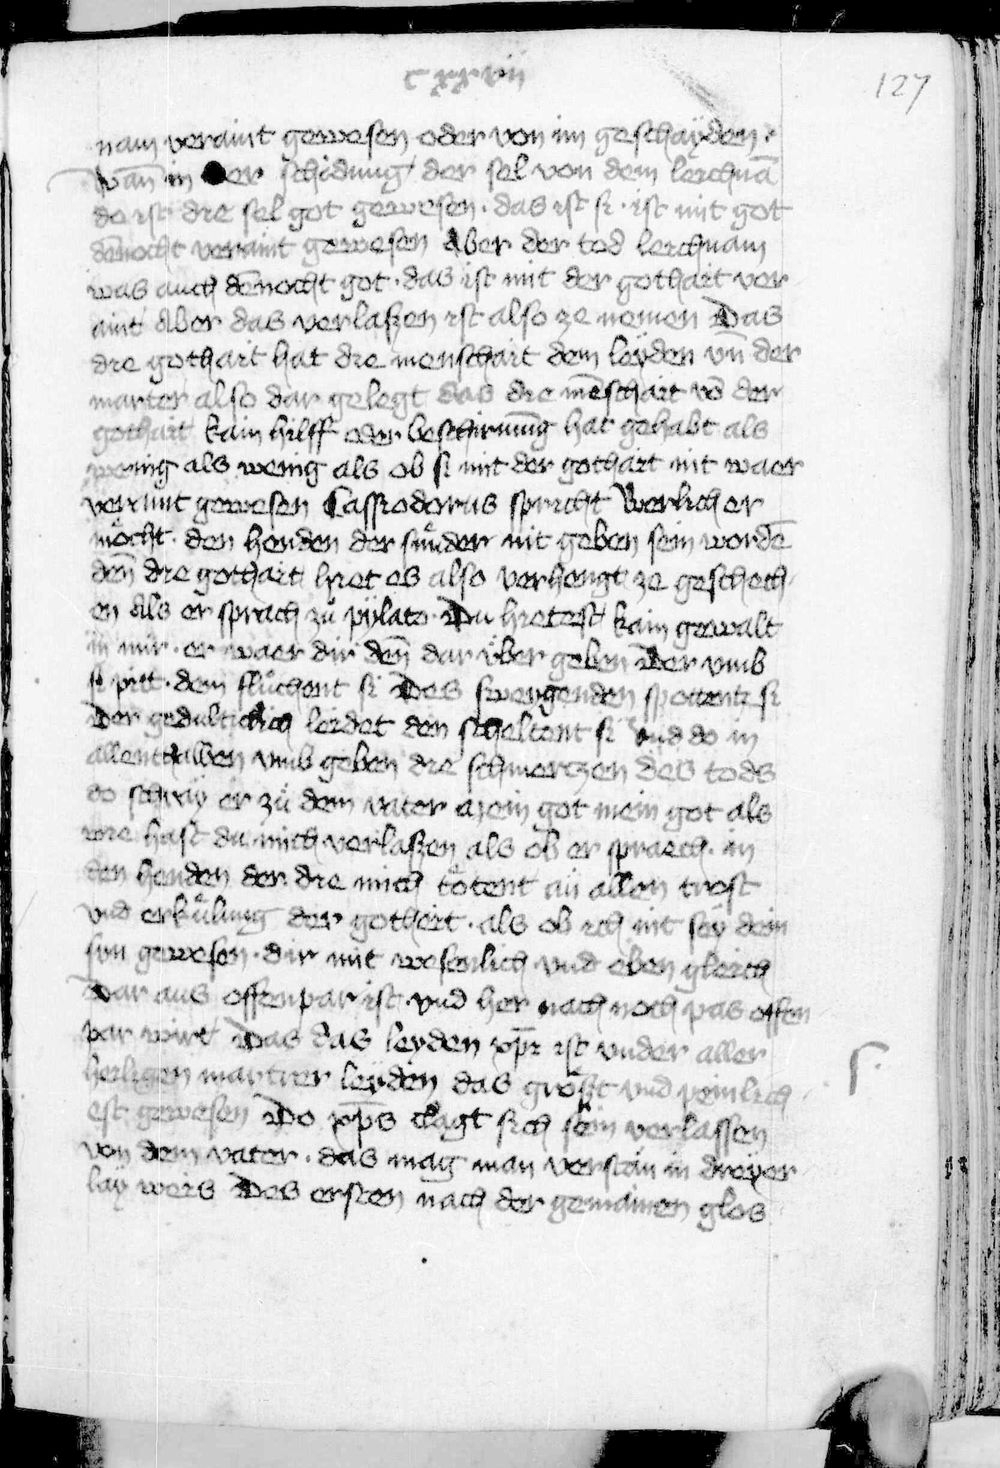 cxxvii
127
nam veraint gewesen oder von im geschayden ·
wan̄ in der schidung der sel von dem leichnā
do ist die sel got gewesen · das ist si · ist mit got
den̄ocht veraint gewesen Aber der tod leichnam
was auch den̄ocht got · das ist mit der gothait ver
aint Aber das verlaszen ist also ze nemen Das
die gothait hat die menschait dem leyden vn̄ der
marter also dar gelegt das die mēschait vō der
gothait kain hilff oder beschirmūg hat gehabt als
wenig als wenig als ob si mit der gothait nit waer
veraint gewesen Cassiodorus spricht Werlich er
möcht · den henden der sünder nit geben sein wordē
den̄ die gothait hiet es also verhengt ze geschech
en Als er sprach zů pylato · Du hietest kain gewalt
in mir · er waer dir den̄ dar über geben Der vmb
si pitt · dem flůchent si Des sweygenden spottent si
Der gedultichlich leidet den scheltent si vnd do in
allenthalben vmb geben die schmerczen des tods
do schray er zů dem vater mein got mein got als
wie hast du mich verlaszen als ob er spraech · in
den henden der die mich tötent an allen trost
vnd erkülung der gothait · als ob ich nit sey dein
sun gewesen · dir mit wesenlich vnd eben gleich
Dar aus offenpar ist · vnd her nach noch pas offen
par wirt Das das leyden xp̄i ist vnder aller
heiligen martrer leyden das gröszt vnd peinlich
est gewesen Do xp̄s clagt sich sein verlassen
von dem vater · das mag man verstan in dreyer
lay weis Des ersten nach der gemainen glos